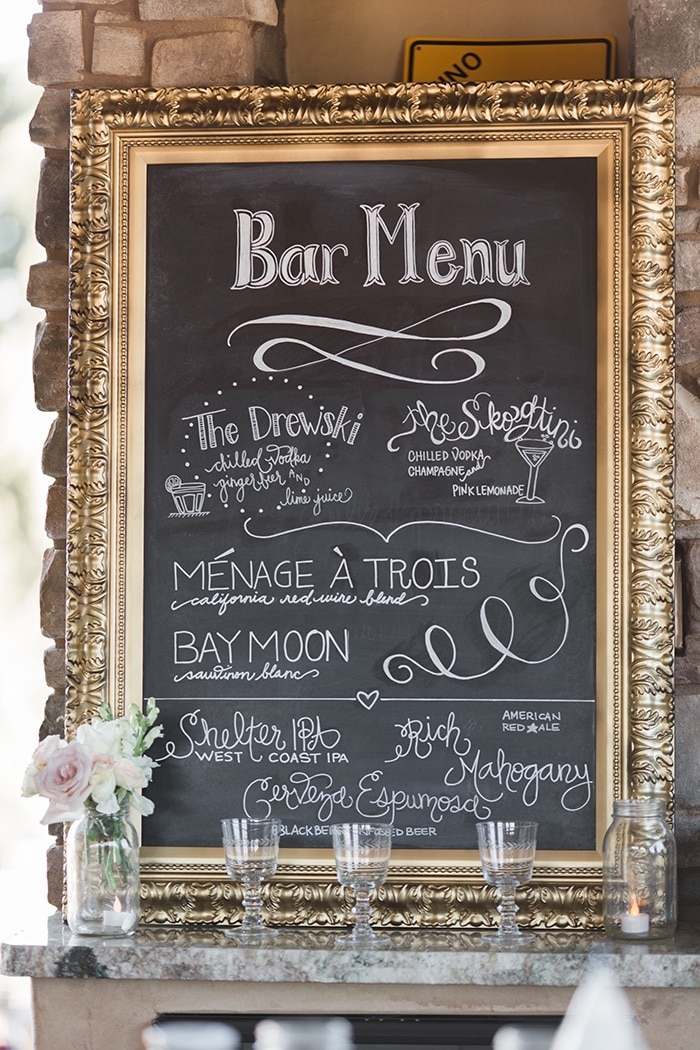 NO
Bar Menu
The Drewski
chilled vodka
ginger beer AND
lime juice
CHILLED VODKA
CHAMPAGNE and
PINK LEMONADE
MÉNAGE À TROIS
california red wine blend
BAY MOON
sauvinon blanc
Shelter IPA
WEST COAST IPA
Rich
Mahogany
AMERICAN
RED ALE
Cerveza Espumosa
BEER